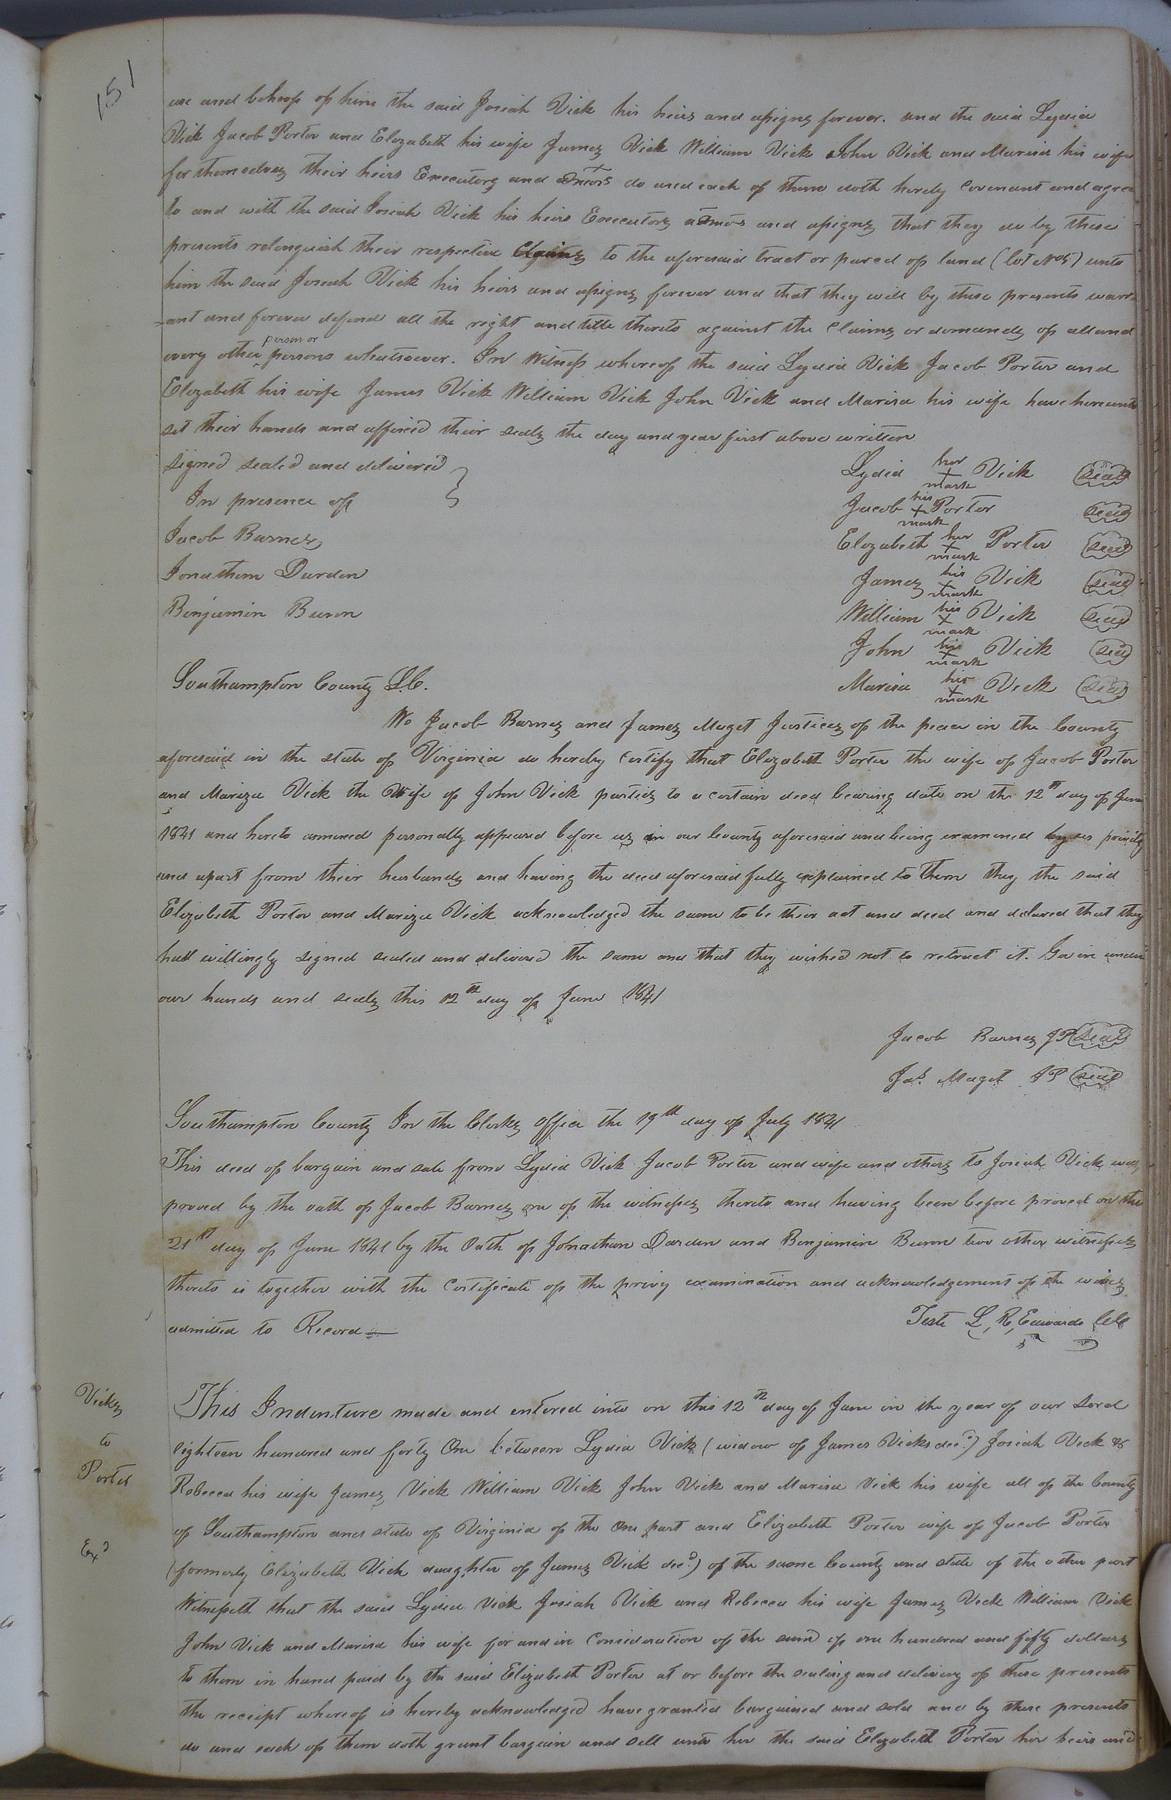 151
use and behoof of him the said Josiah Vick his heirs and assigns forever. and the said Lydia
Vick Jacob Porter and Elizabeth his wife James Vick William Vick John Vick and Marisa his wife
for themselves their heirs Executors and Admors do and each of them doth hereby covenant and agree
to and with the said Josiah Vick his heirs Executors admors and assigns that they do by these
presents relinquish their respective Claims to the aforesaid tract or parcel of land (lot No5) unto
him the said Josiah Vick his heirs and assigns forever and that they will by these presents warr
-ant and forever defend all the right and title thereto against the Claims or demands of all and
every other person or persons whatsoever. In Witness whereof the said Lydia Vick Jacob Porter and
Elizabeth his wife James Vick William Vick John Vick and Marisa his wife have hereunto
set their hands and affixed their seals the day and year first above written
Signed sealed and delivered
In presence of
Jacob Barnes
Jonathan Darden
Benjamin Bunn
Lydia her + mark Vick seal
Jacob his + mark Porter seal
Elizabeth her + mark Porter seal
James his + mark Vick seal
William his + mark Vick seal
John his + mark Vick seal
Marisa her + mark Vick seal
Southampton County SC.
We Jacob Barnes and James Maget Justices of the peace in the County
aforesaid in the state of Virginia do hereby certify that Elizabeth Porter the wife of Jacob Porter
and Mariza Vick the Wife of John Vick parties to a certain deed bearing date on the 12th day of June
1841 and hereto annexed personally appeared before us in our County aforesaid and being examined by us privily
and apart from their husbands and having the deed aforesaid fully explained to them they the said
Elizabeth Porter and Mariza Vick acknowledged the same to be their act and deed and declared that they
had willingly signed sealed and delivered the same and that they wished not to retract it. Given under
our hands and seals this 12th day of June 1841
Jacob Barnes JP seal
Jas. Maget JP seal
Southampton County In the Clerks Office the 19th day of July 1841
This deed of bargain and sale from Lydia Vick Jacob Porter and wife and others to Josiah Vick was
proved by the oath of Jacob Barnes one of the witnesses thereto and having been before proved on the
21st day of June 1841 by the Oath of Johnathan Darden and Benjamin Bunn two other witnesses
thereto is together with the Certificate of the privy examination and acknowledgement of the wives
admitted to Record
Teste L, R, Edwards CC
Vicks
to
Porter
Exd
This Indenture made and entered into on this 12th day of June in the year of our Lord
Eighteen hundred and forty One between Lydia Vick (widow of James Vicks decd) Josiah Vick &
Rebecca his wife James Vick William Vick John Vick and Marisa Vick his wife all of the County
of Southampton and state of Virginia of the One part and Elizabeth Porter wife of Jacob Porter
(formerly Elizabeth Vick daughter of James Vick decd) of the same County and state of the other part
Witnesseth that the said Lydia Vick Josiah Vick and Rebecca his wife James Vick William Vick
John Vick and Marisa his wife for and in Consideration of the sum of one hundred and fifty dollars
to them in hand paid by the said Elizabeth Porter at or before the sealing and delivery of these presents
the receipt whereof is hereby acknowledged have granted bargained and sold and by these presents
do and each of them doth grant bargain and sell unto her the said Elizabeth Porter her heirs and